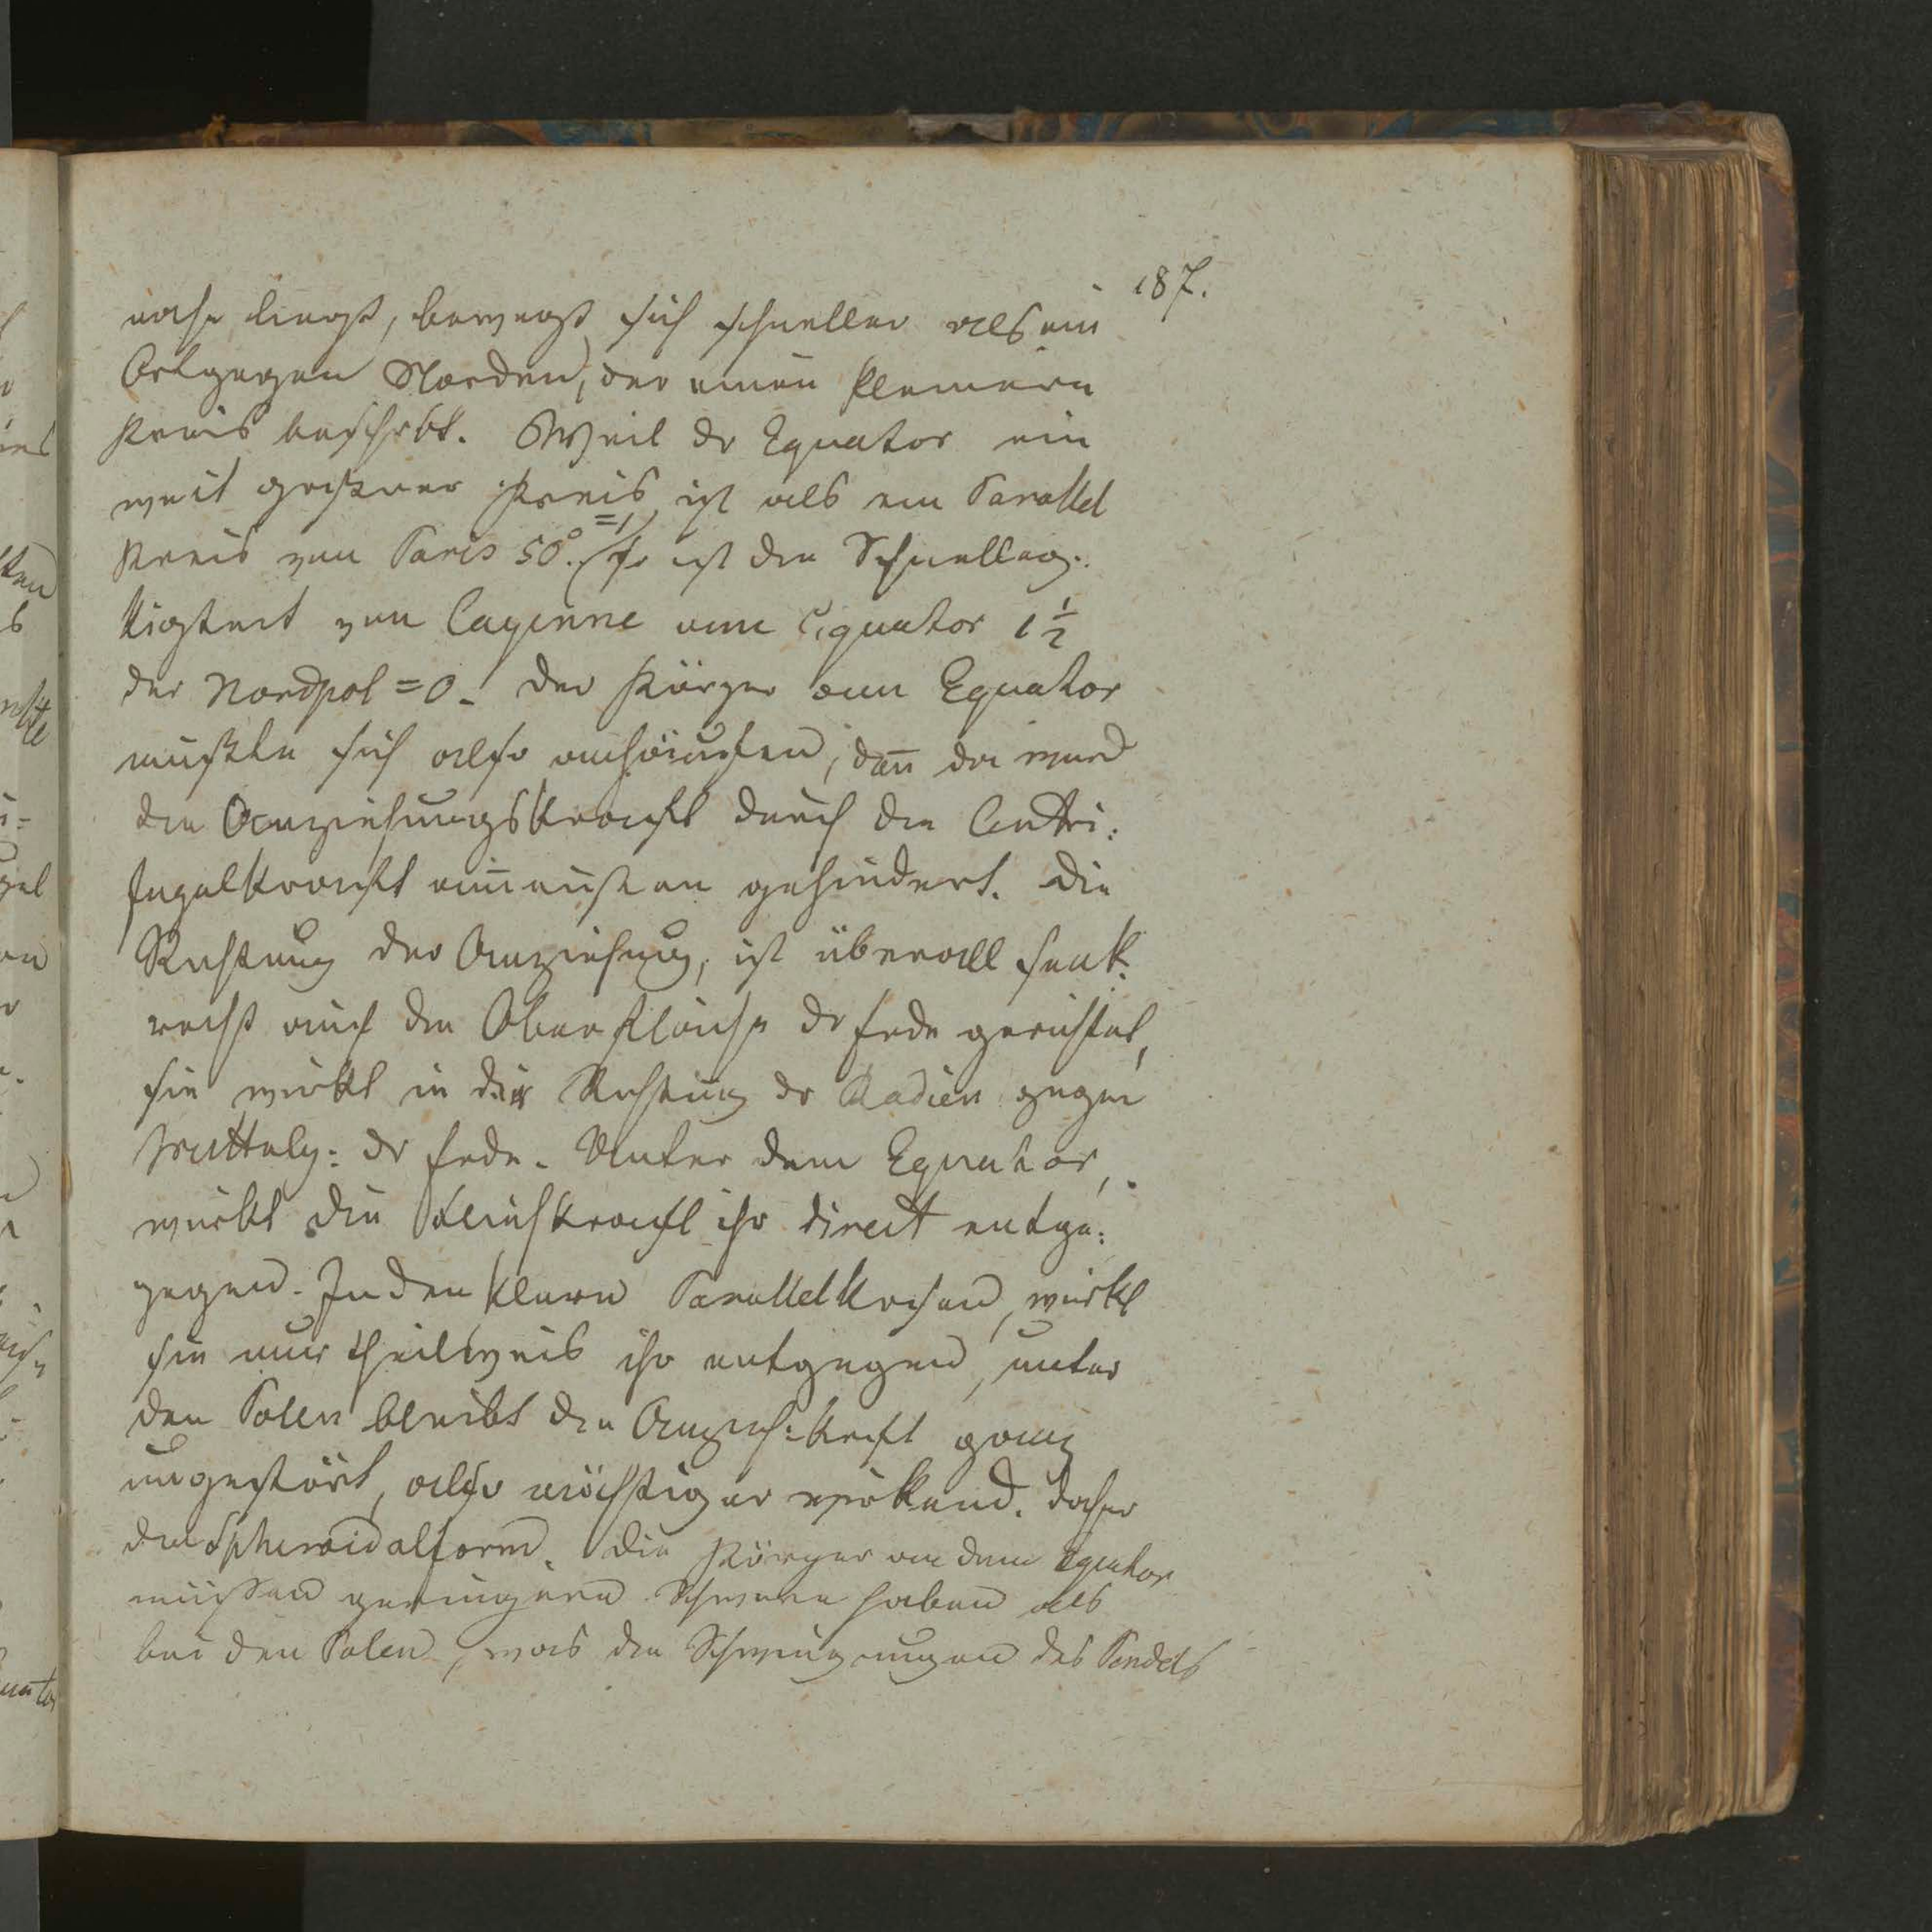 187.
nahe liegt, bewegt sich schneller als ein
Ort gegen Norden, der einen kleinern
Kreis beschrbt. Weil dr Equator ein
weit größrer Kreis ist als ein Parallel
Kreis von Paris 50°. =1/ so ist die Schnellig:
kigkeit von Cayenne am Equator 1 1/2
der Nordpol = 0. Der Körper am Equator
mußte sich also anhäufen, dan̄ da wird
die Anziehungskraft durch die Centri:
fugalkraft am meisten gehindert. Die
Richtung der Anziehung, ist überall senk:
recht auf die Oberfläche dr Erde gerichtet,
sie wirkt in der Richtung dr Radien gegen
Mittelp: dr Erde. Unter dem Equator,
wirkt die Fliehkraft ihr direct entge:
gegen. In den klern Parallelkreisen, wirkt
sie nur theilweis ihr entgegen, unter
den Polen bleibt die Anzieh:kraft ganz
ungestört, also mächtiger wirkend. daher
die Spheroidalform. Die Körper an dem Equator
müssen geringere Schwere haben als
bei den Polen, was die Schwingungen des Pendels